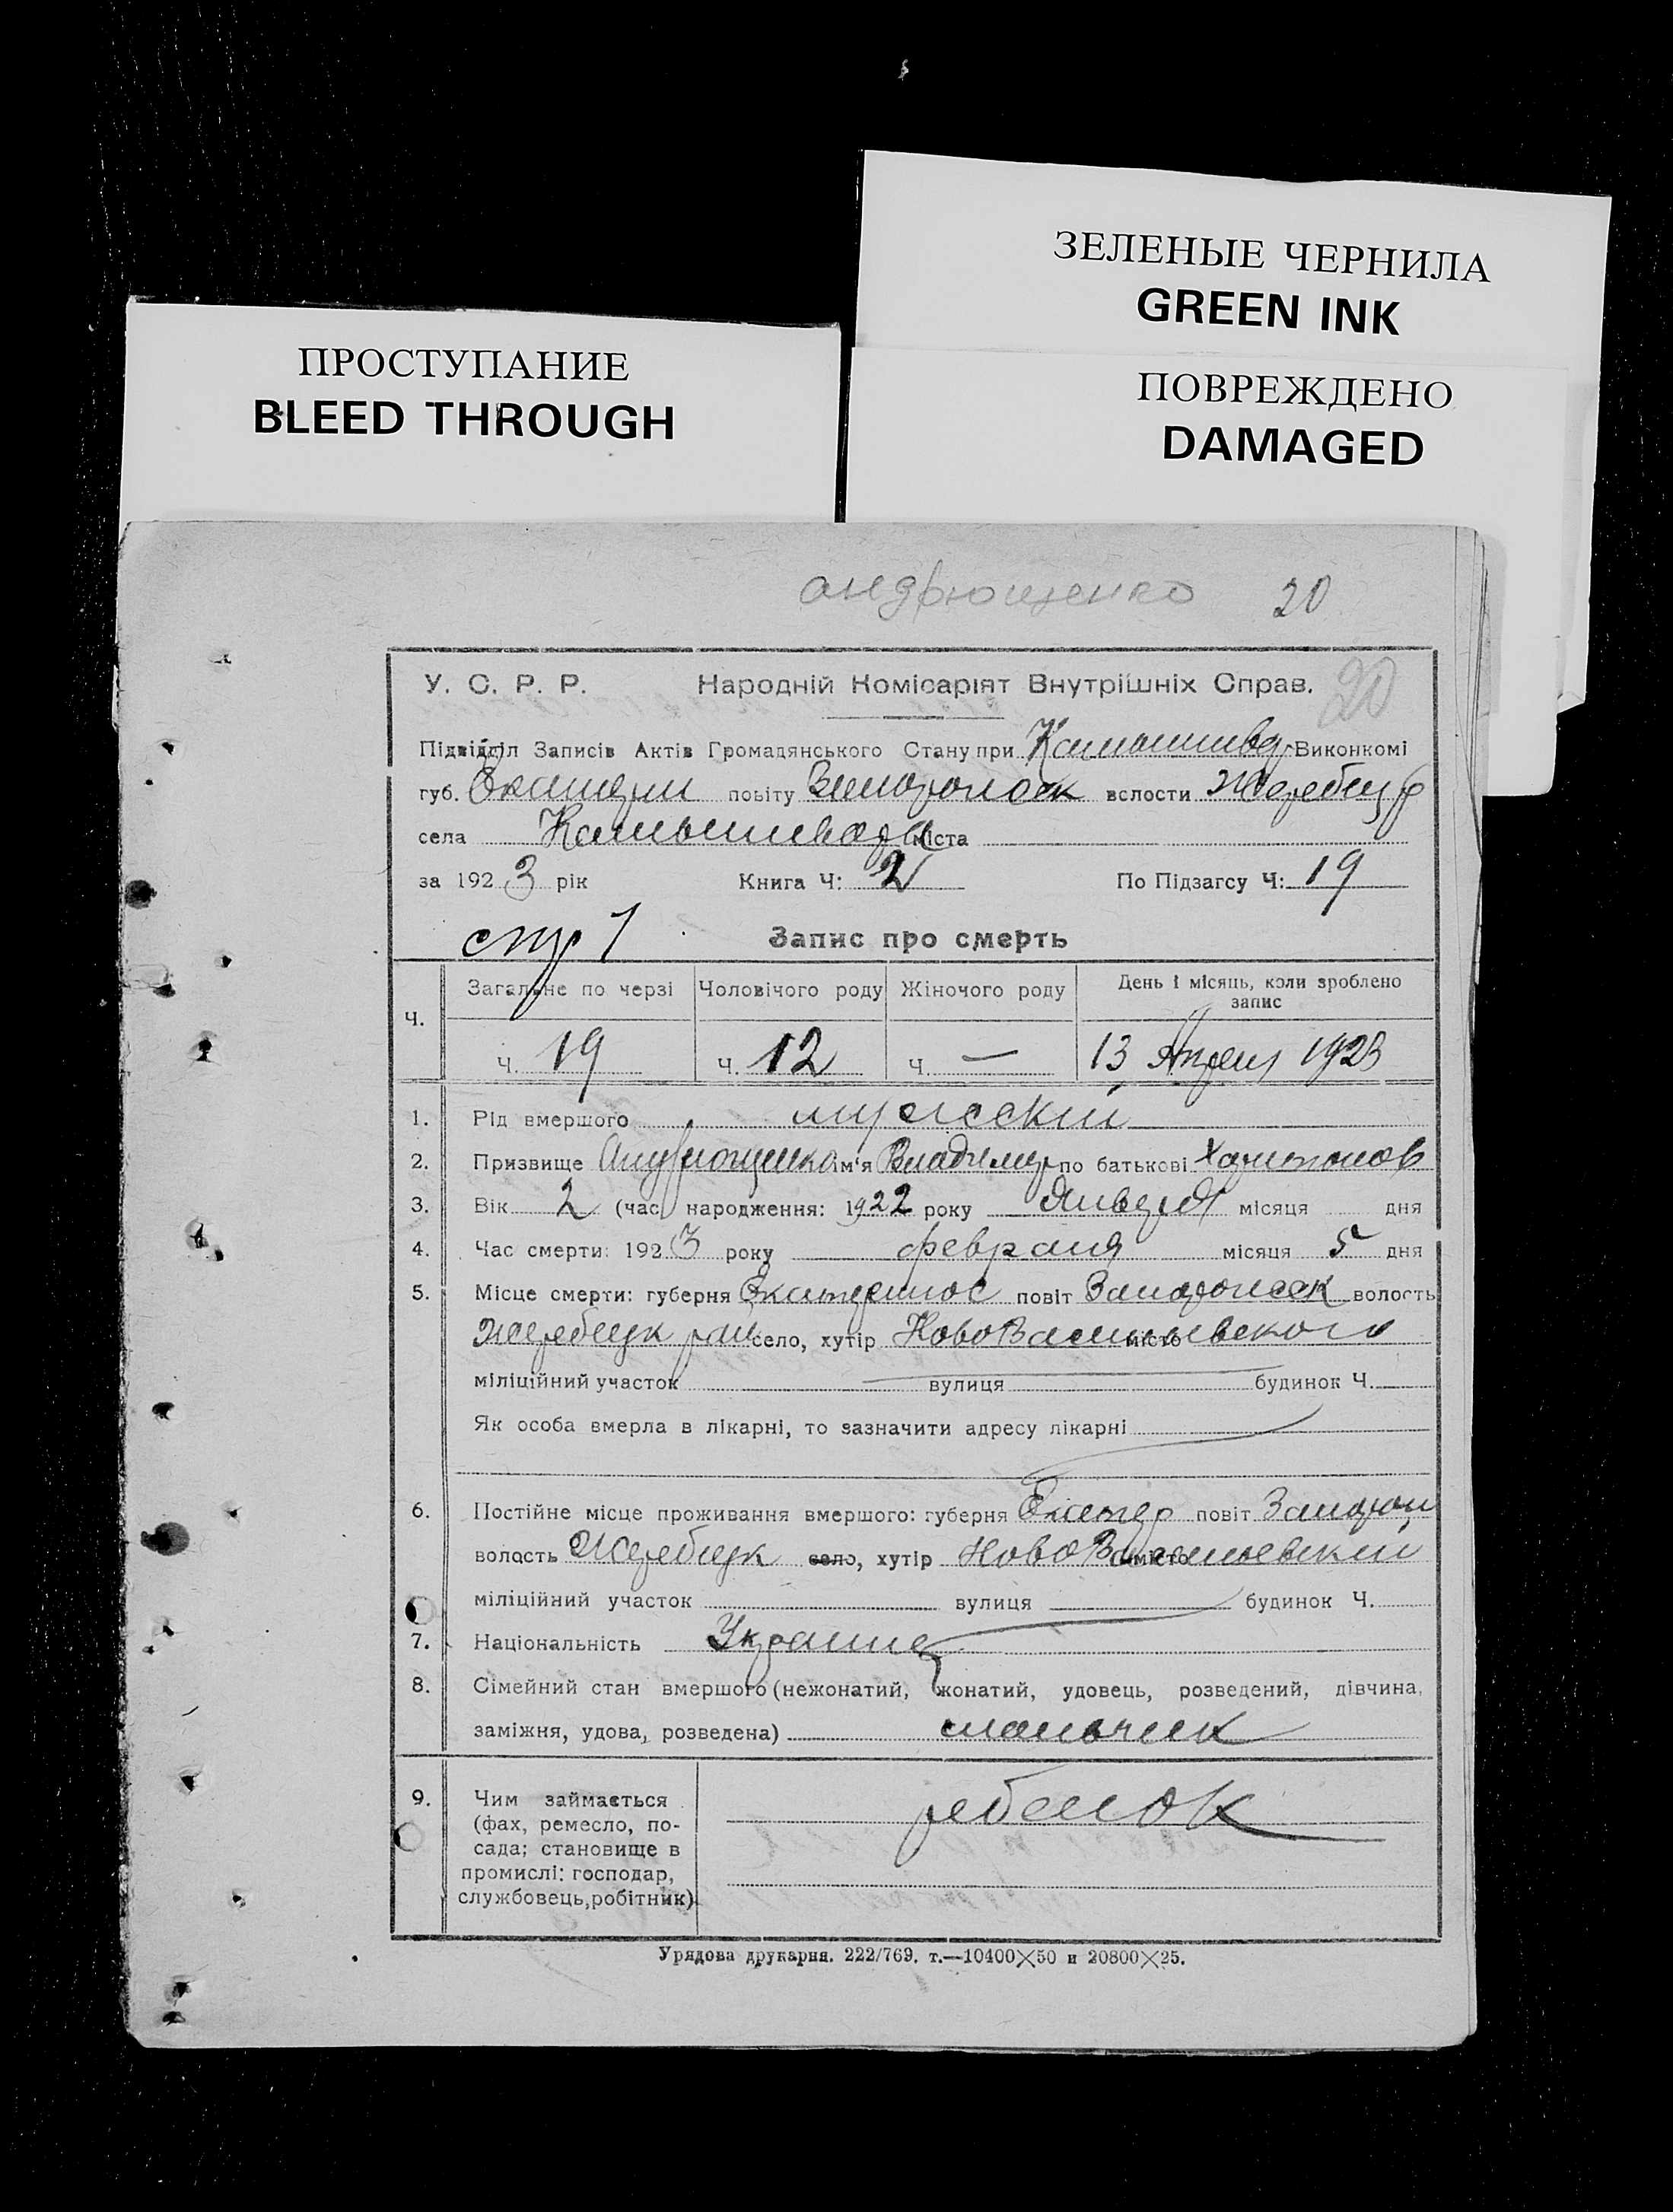 ЗЕЛЕНЫЕ ЧЕРНИЛА
GREEN INK
ПРОСТУПАНИЕ
BLEED THROUGH
ПОВРЕЖДЕНО
DAMAGED
андрющенко 20
У. С. Р. Р. Народній Комісаріят Внутрішніх Справ. 20
Підвідділ Записів Актів Громадянського Стану при Камышева Виконкомі
губ. повіту волости Жеребец
села Камышеваха міста
за 1923 рік Книга Ч: 2 По Підзагсу Ч: 19
стр 1 Запис про смерть
Загальне по черзі Чоловічого роду Жіночого роду День і місяць, коли зроблено
запис
Ч.
Ч. 19 Ч. 12 Ч. — 13 Апреля 1923
1. Рід вмершого мужеский
2. Призвище Андрющенко ім'я Владимир по батькові Харитонов
3. Вік 2 (час народження: 1922 року Января місяця дня
4. Час смерти: 1923 року февраля місяця 5 дня
5. Місце смерти: губернія Екатеринос повіт Запорожск волость
Жеребецк район село, хутір НовоВасильевского місто
міліційний участок вулиця будинок Ч.
Як особа вмерла в лікарні, то зазначити адресу лікарні
6. Постійне місце проживання вмершого: губерня Екатер повіт Запорож
волость Жеребецк село, хутір НовоВасильевский місто
міліційний участок вулиця будинок Ч.
7. Національність Украинец
8. Сімейний стан вмершого (нежонатий, жонатий, удовець, розведений, дівчина,
заміжня, удова, розведена) мальчик
9. Чим займається ребенок
(фах, ремесло, по-
сада; становище в
промислі: господар,
службовець, робітник)
Урядова друкарня. 222/769. т.—10400×50 и 20800×25.